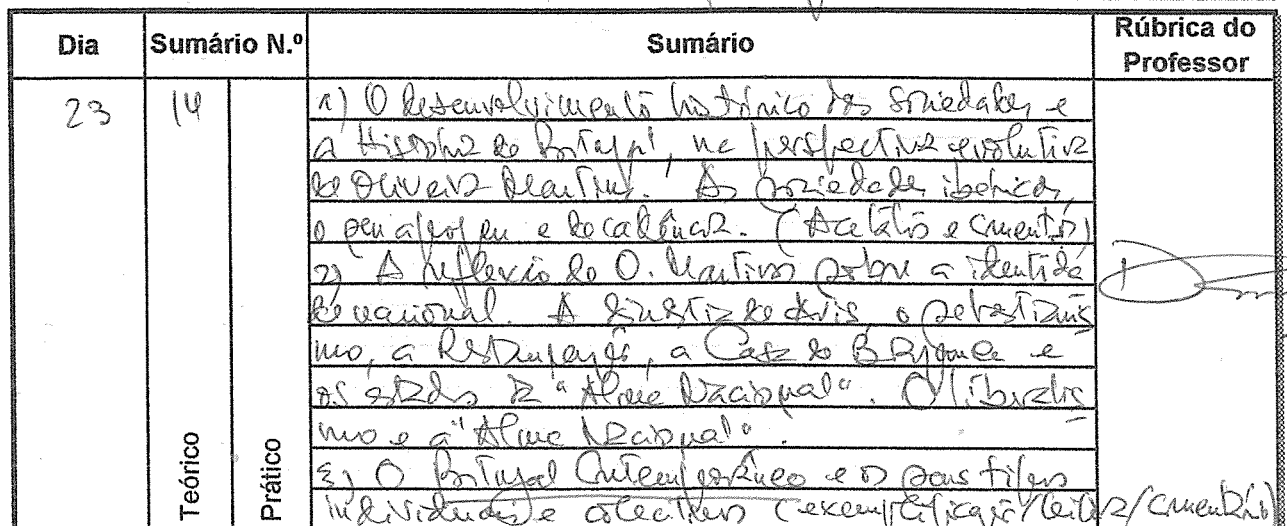 Dia Sumário N.º Sumário Rúbrica do Professor
23 14 1) O desenvolvimento histórico das sociedades e
a História de Portugal, na perspectiva evolutiva
de Oliveira Martins. As sociedades ibéricas,
o seu apogeu e decadência. (Acetatos e comentários)
2) A reflexão de O. Martins sobre a identida
de nacional. A dinastia de Avis, o sebastianis
mo, a Restauração, a Casa de Bragança e
os estados da "Alma Nacional". O liberalis
mo e a "Alma Nacional".
3) O Portugal Contemporâneo e os seus tipos
individuais e colectivos (exemplificação/leitura/comentário)
Teórico
Prático